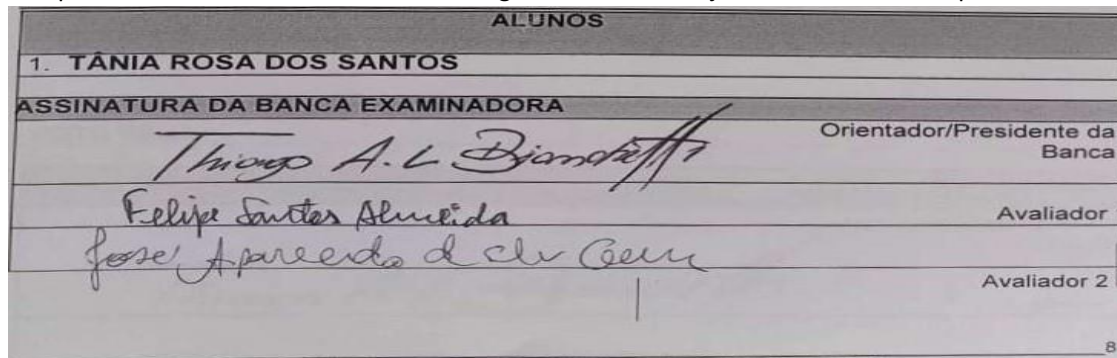 ALUNOS
1. TÂNIA ROSA DOS SANTOS
ASSINATURA DA BANCA EXAMINADORA
Thiago A. L Bianchetti
Orientador/Presidente da
Banca
Felipe Santos Almeida
Avaliador
José Aparecido
Avaliador 2
8